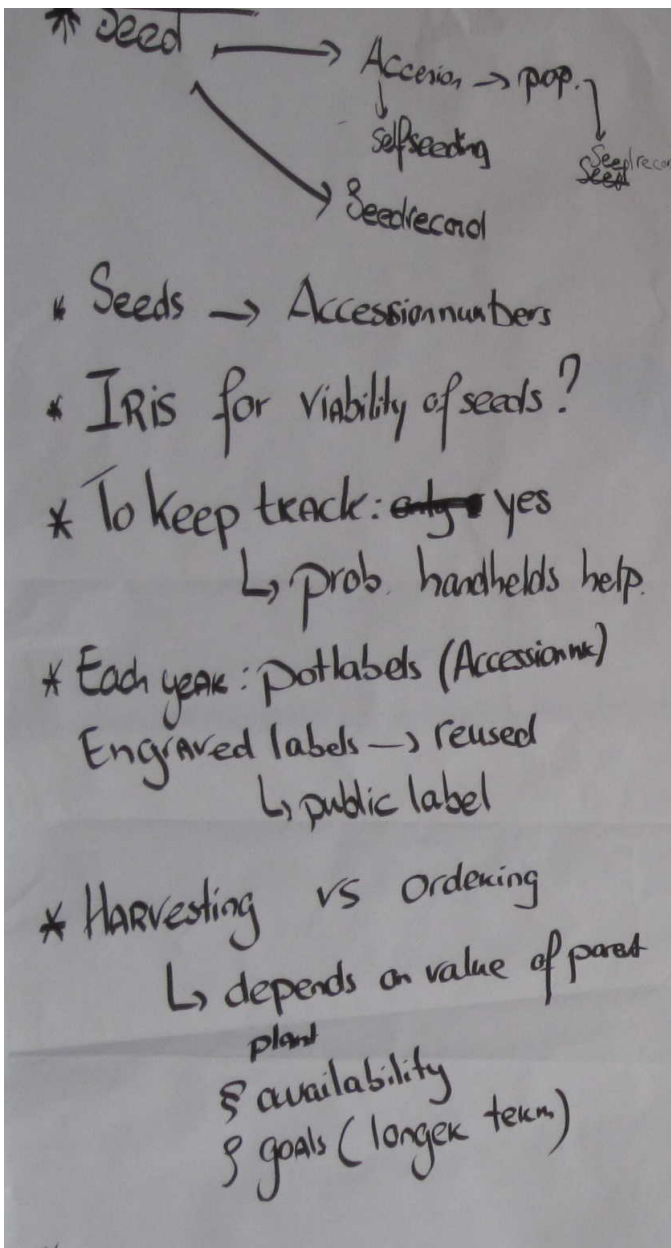 * Seed → Accesion → pop.
selfseeding
Seedrecor
Seed
Seedrecord
* Seeds → Accessionnumbers
* IRis for viability of seeds?
* To keep track: only yes
↳ prob. handhelds help.
* Each year: potlabels (Accessionnr)
Engraved labels → reused
↳ public label
* HARvesting vs Ordering
↳ depends on value of parent
plant
& availability
& goals (longer term)